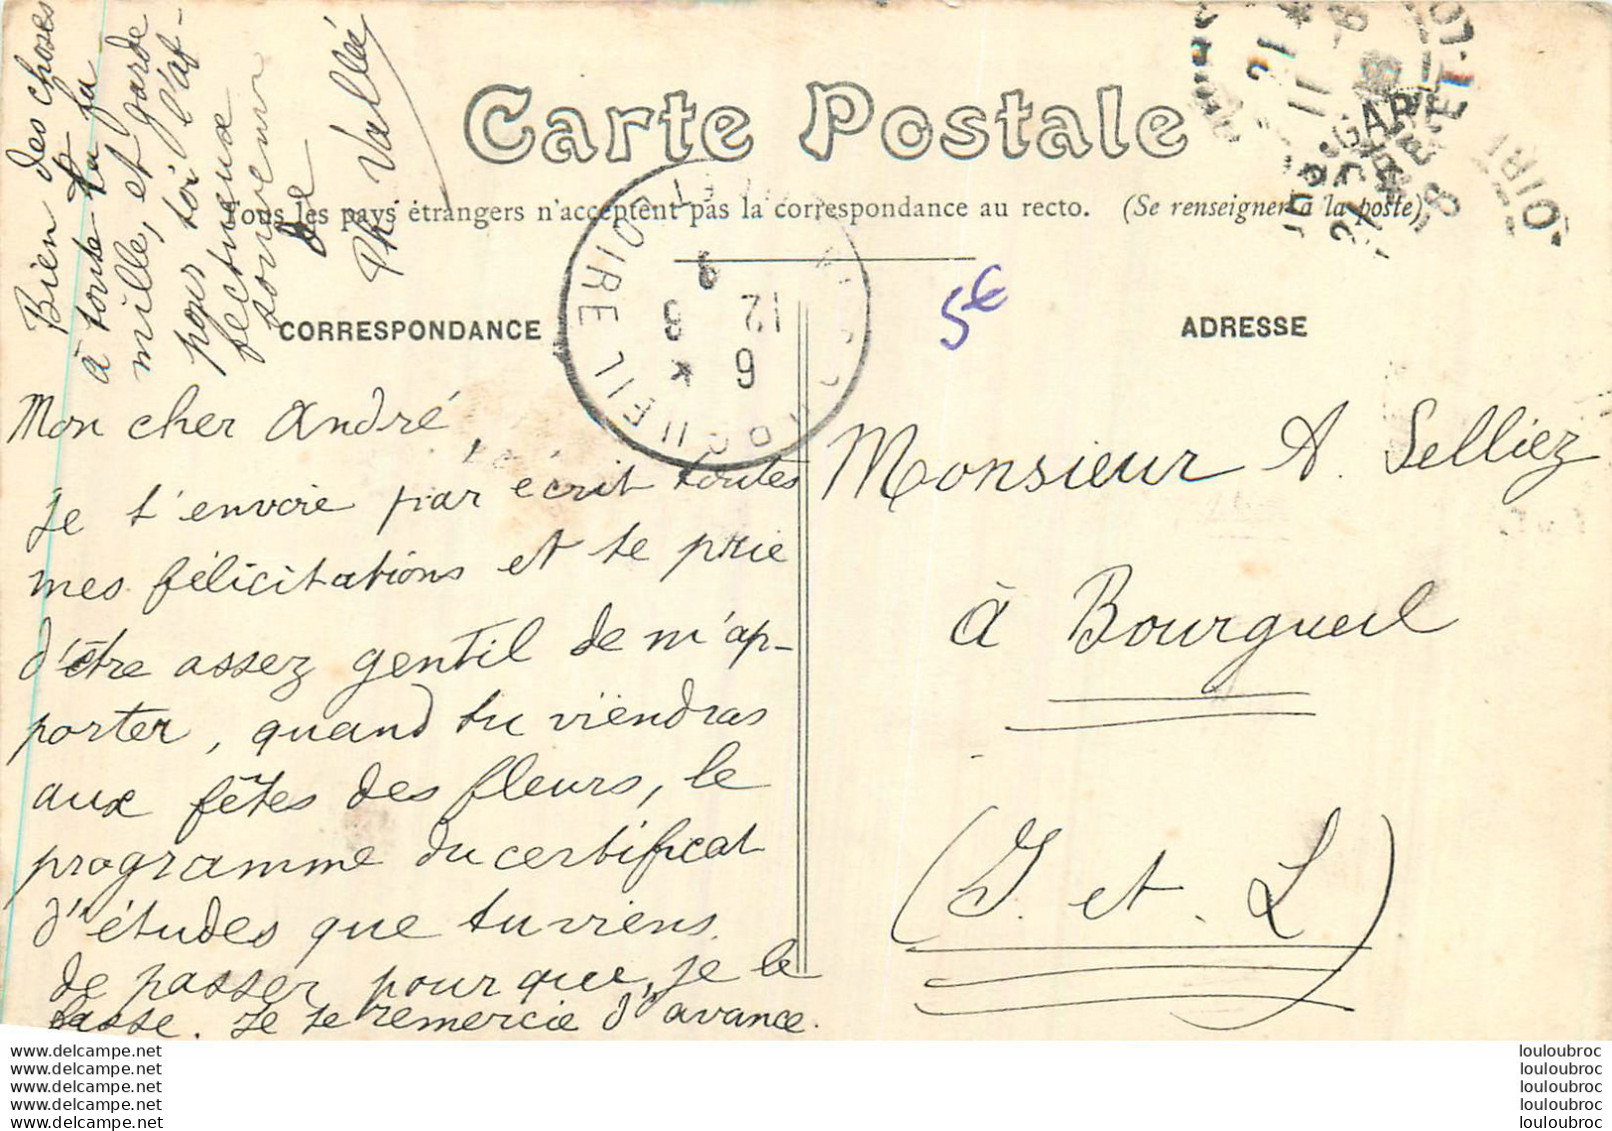 Carte Postale
Tous les pays étrangers n'acceptent pas la correspondance au recto. (Se renseigner à la poste)
CORRESPONDANCE
ADRESSE
5€
Mon cher André,
Je t'envoie par écrit toutes
mes félicitations et te prie
d'être assez gentil de m'ap-
porter, quand tu viendras
aux fêtes des fleurs, le
programme du certificat
d'études que tu viens
de passer pour que, je le
passe. Je te remercie d'avance.
Bien des choses
à toute ta fa
mille, et garde
pour toi l'af-
fectueux
souvenir
de
Ph. Vallée
Monsieur A. Selliez
à Bourgueil
(I. et L)
ET LOIRE
6
12
8
GARE
www.delcampe.net
www.delcampe.net
www.delcampe.net
www.delcampe.net
www.delcampe.net
louloubroc
louloubroc
louloubroc
louloubroc
louloubroc